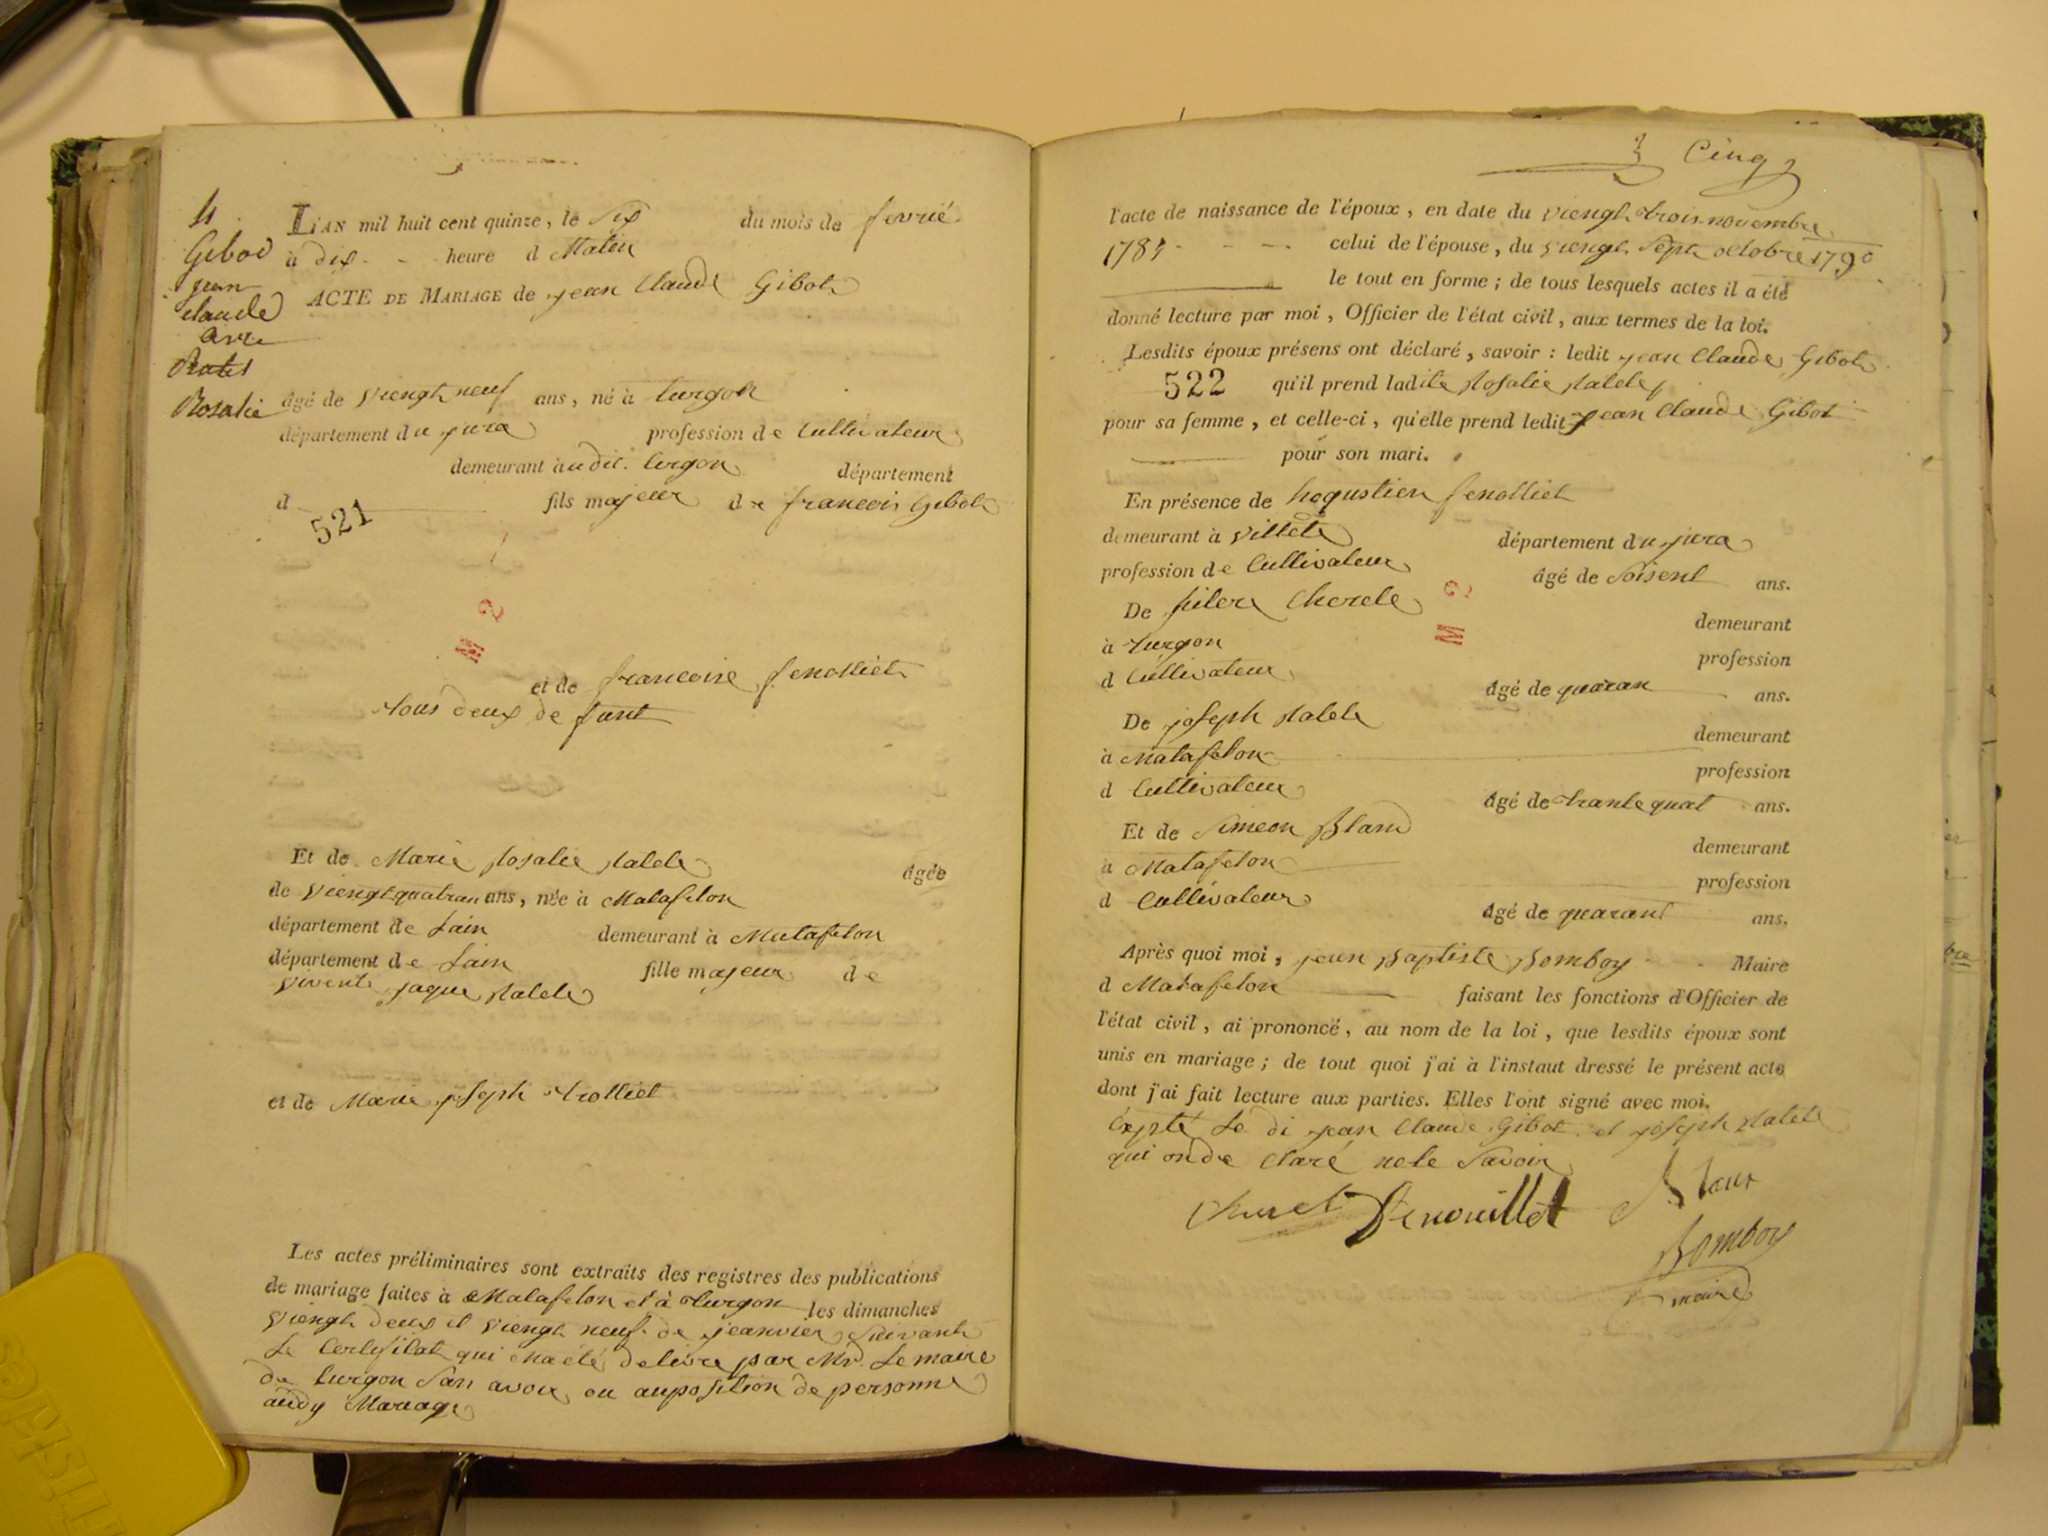 4
Gibod
jean
claude
avec
Ratel
Rosalie
L'AN mil huit cent quinze, le Six du mois de fevrié
à dix heure d Matin
ACTE DE MARIAGE de jean Claude Gibot
âgé de viengt neuf ans, né à turgon
département du jura profession de Cultivateur
demeurant audit turgon département
d fils majeur de francois Gibot
521
M 2
et de francoise fenolliet
tous deux de funt
Et de Marie Rosalie Ratele âgée
de viengt quatran ans, née à Matafelon
département de Lain demeurant à Matafelon
département de Lain fille majeur de
vivent jaque Ratele
et de Marie joseph trolliet
Les actes préliminaires sont extraits des registres des publications
de mariage faites à Matafelon et à turgon les dimanches
viengt deux et viengt neuf de jeanvier Suivant
Le Certifilat qui ma été delivre par Mr. Le maire
de turgon San avoir ou auposition de personne
audy Mariage
Cinq
l'acte de naissance de l'époux, en date du viengt trois novembre
1785 celui de l'épouse, du viengt Sept octobre 1790
le tout en forme ; de tous lesquels actes il a été
donné lecture par moi, Officier de l'état civil, aux termes de la loi.
Lesdits époux présens ont déclaré, savoir : ledit jean Claude Gibot
522 qu'il prend ladite Rosalie Ratele
pour sa femme, et celle-ci, qu'elle prend ledit jean Claude Gibot
pour son mari.
En présence de hogustien fenolliet
demeurant à villete département du jura
profession de Cultivateur âgé de Soisent ans.
M 2
De Cherele
demeurant
à turgon
profession
d Cultivateur âgé de quaran ans.
De joseph Ratele
demeurant
à Matafelon
profession
d Cultivateur âgé de trante quat ans.
Et de Simeon Bland
demeurant
à Matafelon
profession
d Cultivateur âgé de quarant ans.
Après quoi moi, jean Baptiste Bomboy Maire
d Matafelon faisant les fonctions d'Officier de
l'état civil, ai prononcé, au nom de la loi, que lesdits époux sont
unis en mariage ; de tout quoi j'ai à l'instaut dressé le présent acte
dont j'ai fait lecture aux parties. Elles l'ont signé avec moi.
Expté Le di jean Claude Gibot et joseph Ratele
qui onde claré nele Savoir
Fenouillet
Bomboy
maire